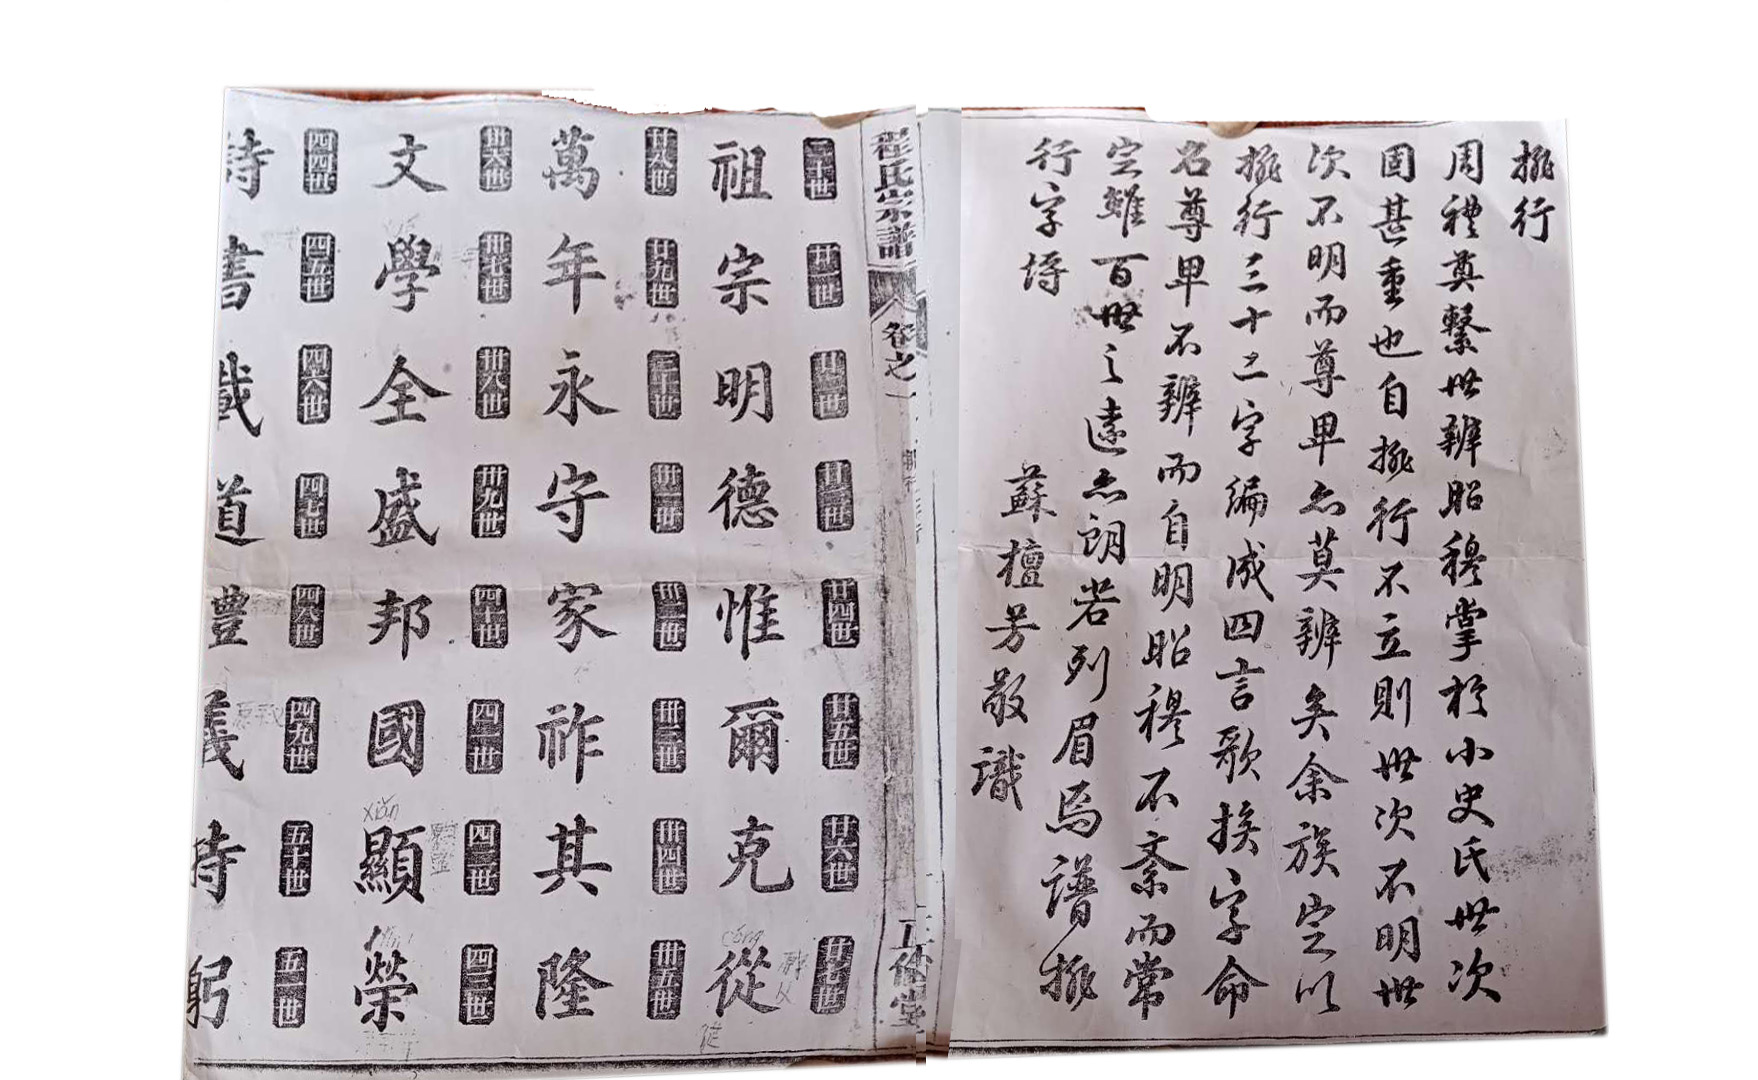 排行
周禮奠繫世辨昭穆掌於小史氏世次
固甚重也自排行不立則世次不明世
次不明而尊卑亦莫辨矣余族定以
排行三十二字編成四言歌挨字命
名尊卑不辨而自明昭穆不紊而常
定雖百世之遠亦朗若列眉焉譜排
行字時
蘇檀芳敬識
氏宗譜 卷之一 堂
二十世 廿一世 廿二世 廿三世 廿四世 廿五世 廿六世 廿七世
祖宗明德惟爾克從
cóng
廿八世 廿九世 三十世 卅一世 卅二世 卅三世 卅四世 卅五世
萬年永守家祚其隆
卅六世 卅七世 卅八世 卅九世 四十世 四一世 四二世 四三世
文學全盛邦國顯榮
xiǎn
四四世 四五世 四六世 四七世 四八世 四九世 五十世 五一世
詩書載道禮義持躬